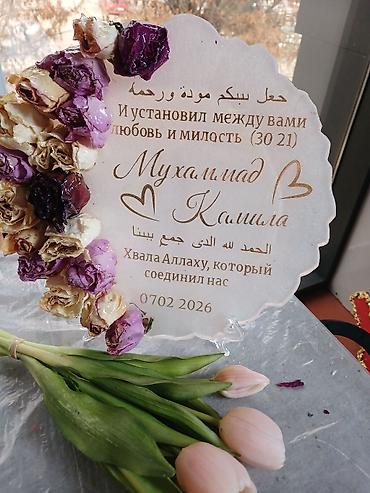 جعل بينكم مودة ورحمة
И установил между вами
любовь и милость (30 21)
Мухаммад
Камила
الحمد لله الذي جمع بيننا
Хвала Аллаху, который
соединил нас
0702 2026